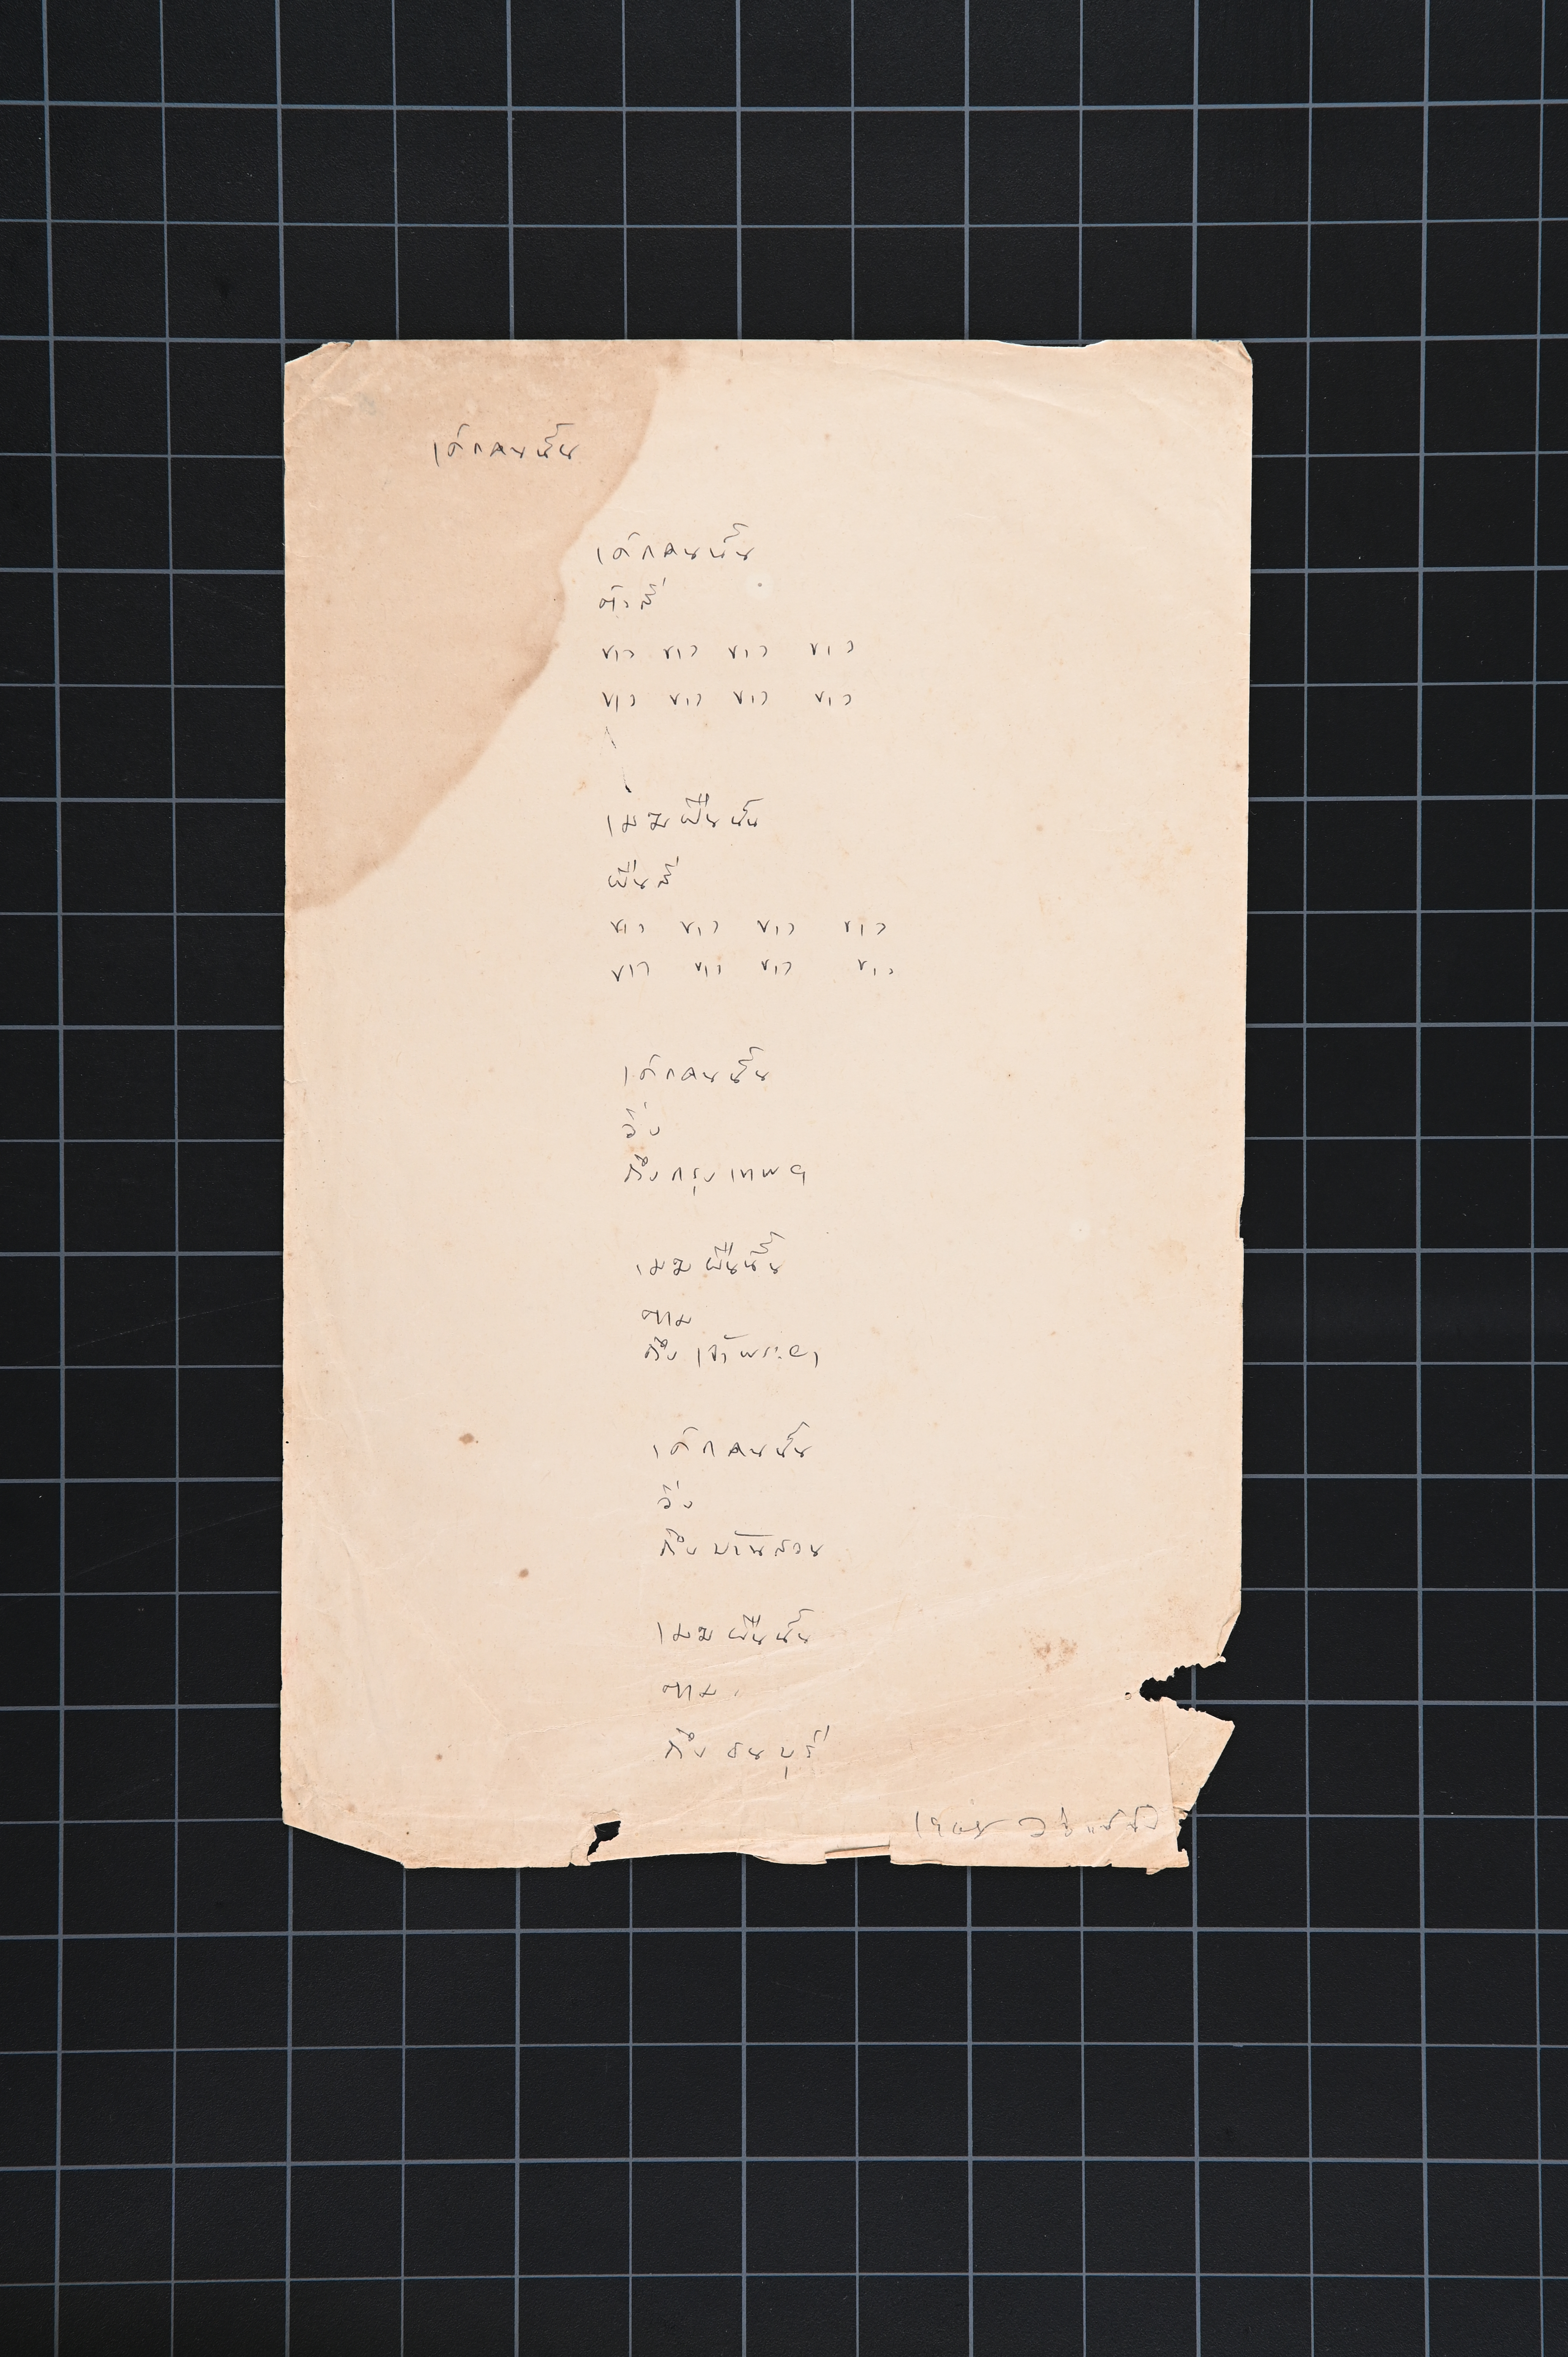 เด็กคนนั้น
เด็กคนนั้น
ตัวสี
ขาว ขาว ขาว ขาว
ขาว ขาว ขาว ขาว
เมฆผืนนั้น
ผืนสี
ขาว ขาว ขาว ขาว
ขาว ขาว ขาว ขาว
เด็กคนนั้น
วิ่ง
ถึงกรุงเทพฯ
เมฆผืนนั้น
ตาม
ถึงเจ้าพระยา
เด็กคนนั้น
วิ่ง
ถึงบ้านสวน
เมฆผืนนั้น
ตาม
ถึงธนบุรี